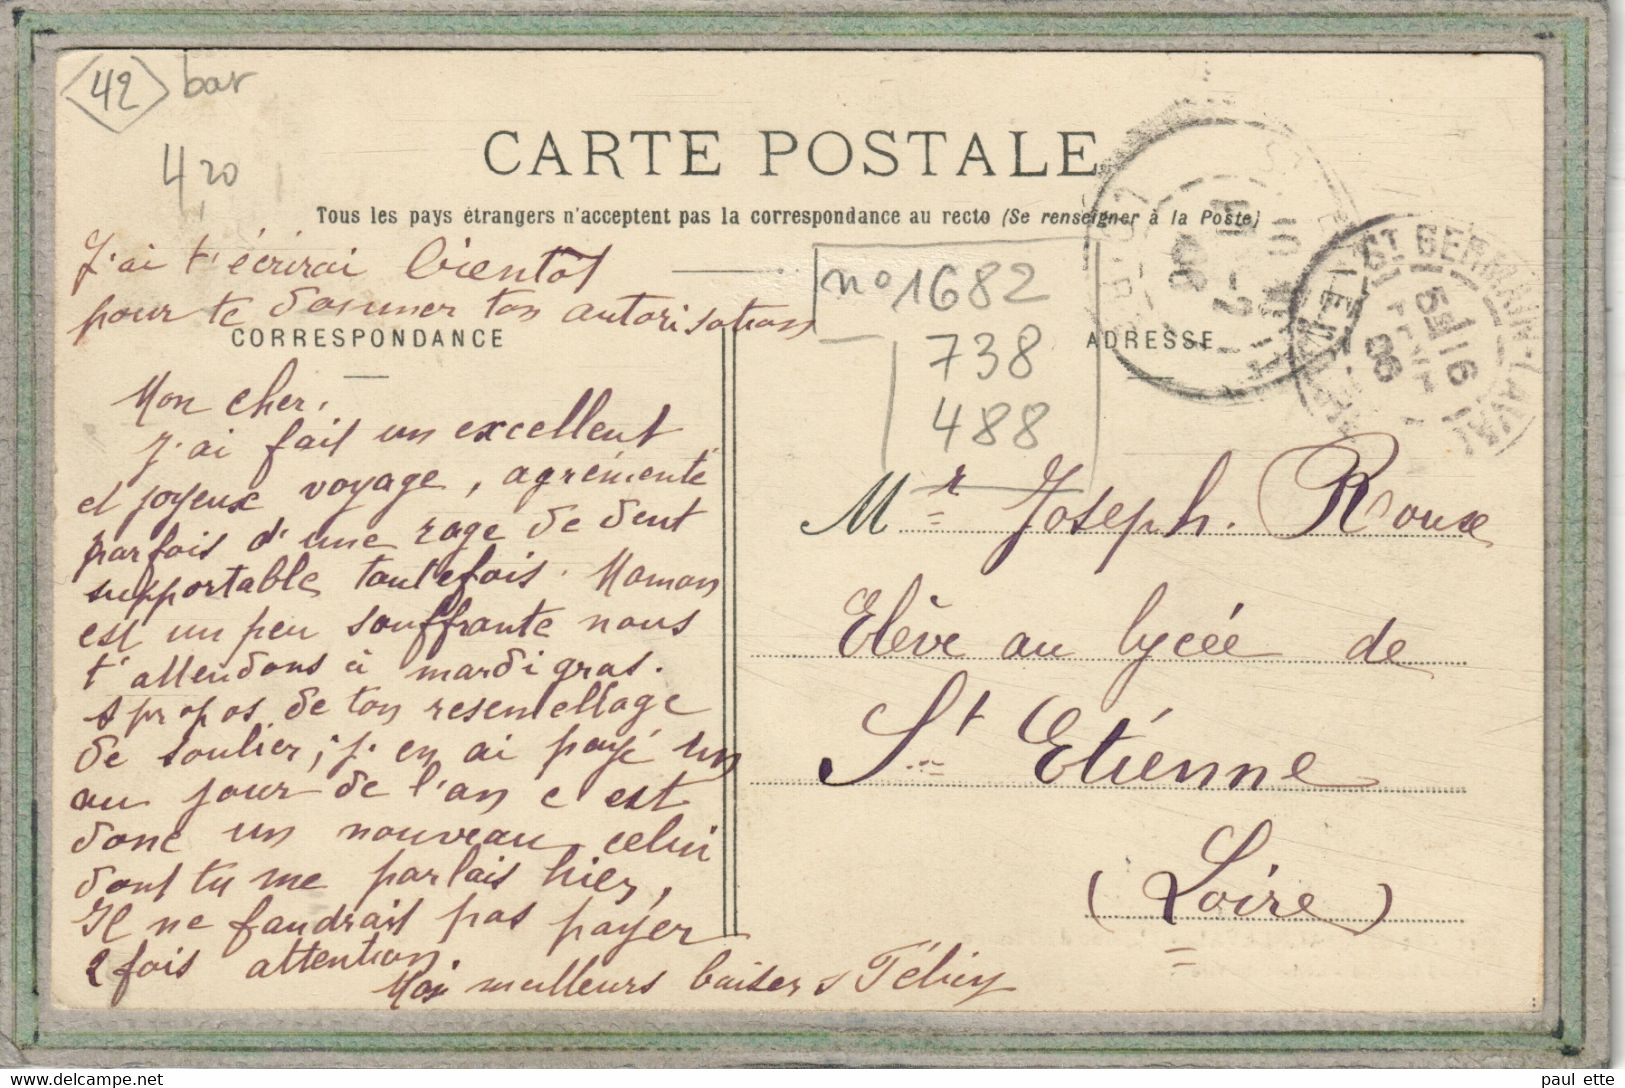 42
bar
4,20
CARTE POSTALE
Tous les pays étrangers n'acceptent pas la correspondance au recto (Se renseigner à la Poste)
J'ai t'écrirai bientôt
pour te donner ton autorisation
CORRESPONDANCE
Mon cher,
J'ai fait un excellent
et joyeux voyage, agrémenté
parfois d'une rage de dent
supportable toutefois. Maman
est un peu souffrante nous
t'attendons à mardi gras.
A propos de ton resemellage
de soulier, j'en ai payé un
au jour de l'an c'est
donc un nouveau celui
dont tu me parlais hier,
Il ne faudrait pas payer
2 fois attention.
Mes meilleurs baisers
n° 1682
738
488
ADRESSE
ST GERMAIN-LAVAL
16
06
Mr Joseph Roux
Elève au lycée de
St Etienne
(Loire)
paul ette